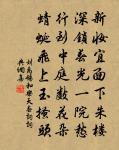 新妝宜面下朱樓
深鎖春光一院愁
行到中庭數花朵
蜻蜓飛上玉搔頭
劉禹錫和樂天春詞詩